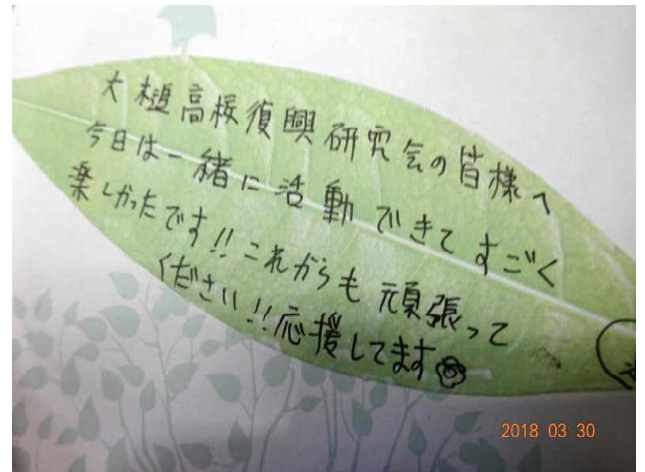 大槌高校復興研究会の皆様へ
今日は一緒に活動できてすごく
楽しかったです!!これからも頑張って
ください!!応援してます
2018 03 30